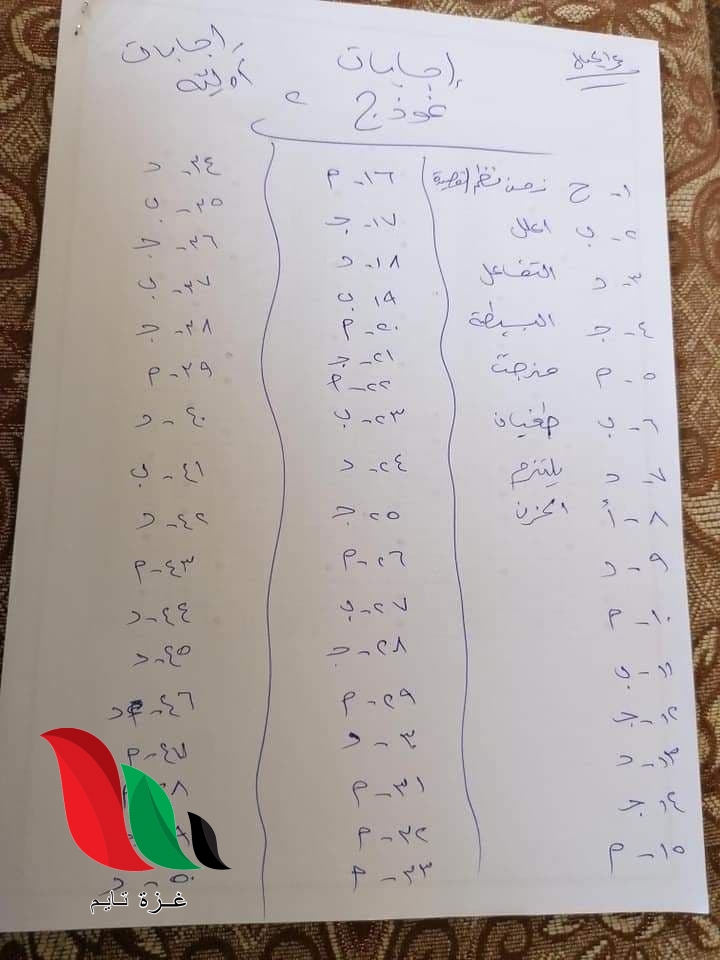 إجابات
نموذج
إجابات
أسئلة
١- ح زمن نظم القصيدة
٢- ب اعلل
٣- د التفاعل
٤- ج البسيطة
٥- م مزجت
٦- ب طغيان
٧- د يلتزم
٨- أ الحزن
٩- د
١٠- م
١١- ب
١٢- ج
١٣- د
١٤- ج
١٥- م
١٦- م
١٧- ج
١٨- د
١٩- ب
٢٠- م
٢١- ج
٢٢- م
٢٣- ب
٢٤- د
٢٥- ج
٢٦- م
٢٧- ب
٢٨- ج
٢٩- م
٣٠- د
٣١- م
٣٢- م
٣٣- م
٣٤- د
٣٥- ب
٣٦- ج
٣٧- ب
٣٨- ج
٣٩- م
٤٠- د
٤١- ب
٤٢- د
٤٣- م
٤٤- د
٤٥- د
٤٦- د
٤٧- م
٥٠- د
غزة تايم